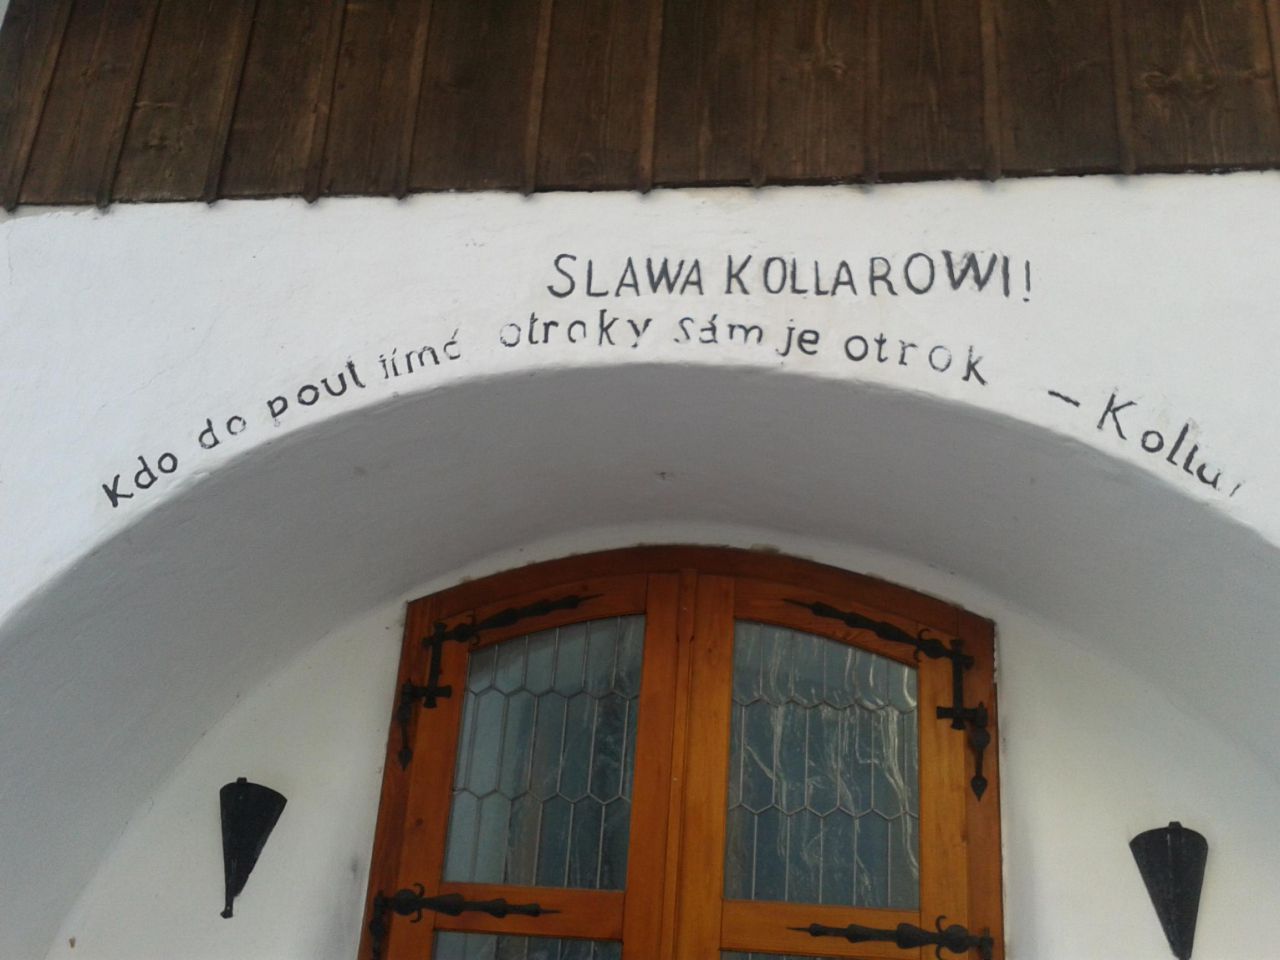 SLAWA KOLLAROWI!
Kdo do pout jímá otroky sám je otrok – Kollár